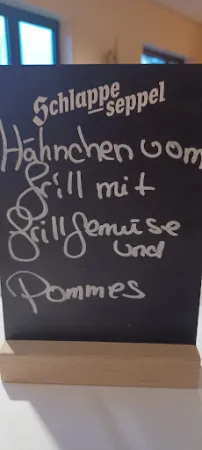 Schlappe
seppel
Hähnchen vom
Grill mit
Grillgemüse
und
Pommes